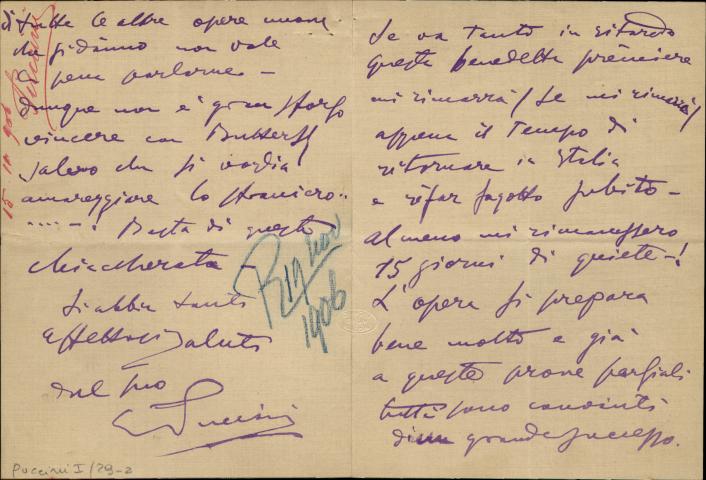 di tutte le altre opere nuove
che si dànno non vale
pena parlarne –
dunque non è gran sforzo
vincere con Butterfly
salvo che si voglia
amareggiare lo straniero..
....–! Basta di queste
chiaccherata –
Si abbia tanti
affettuosi saluti
dal suo
G Puccini
15 11 906
Puccini
R 19 nov
1906
Puccini I/29-2
Se va tanto in ritardo
questa benedetta première
mi rimarrà / se mi rimarrà /
appena il tempo di
ritornare in Italia
e rifar fagotto subito –
almeno mi rimanessero
15 giorni di quiete –!
L'opera si prepara
bene molto e già
a queste prove parziali
tutti sono convinti
di un grande successo.